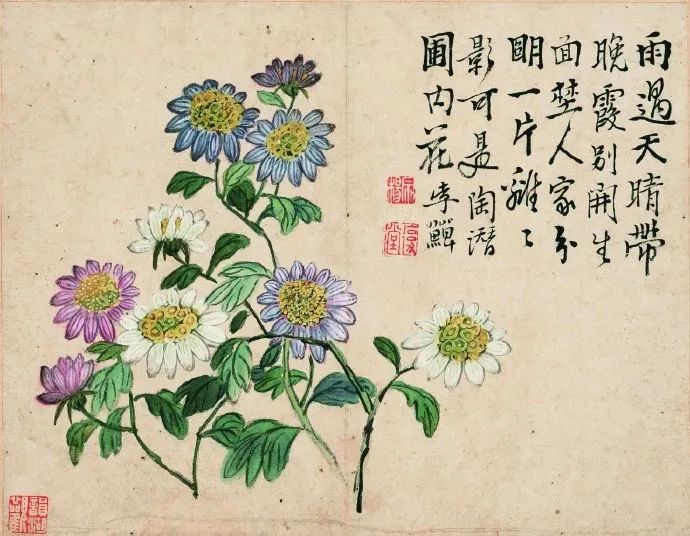 雨過天晴帶
晚霞別開生
面埜人家分
明一片籬〻
影可是陶潛
圃内花李鱓